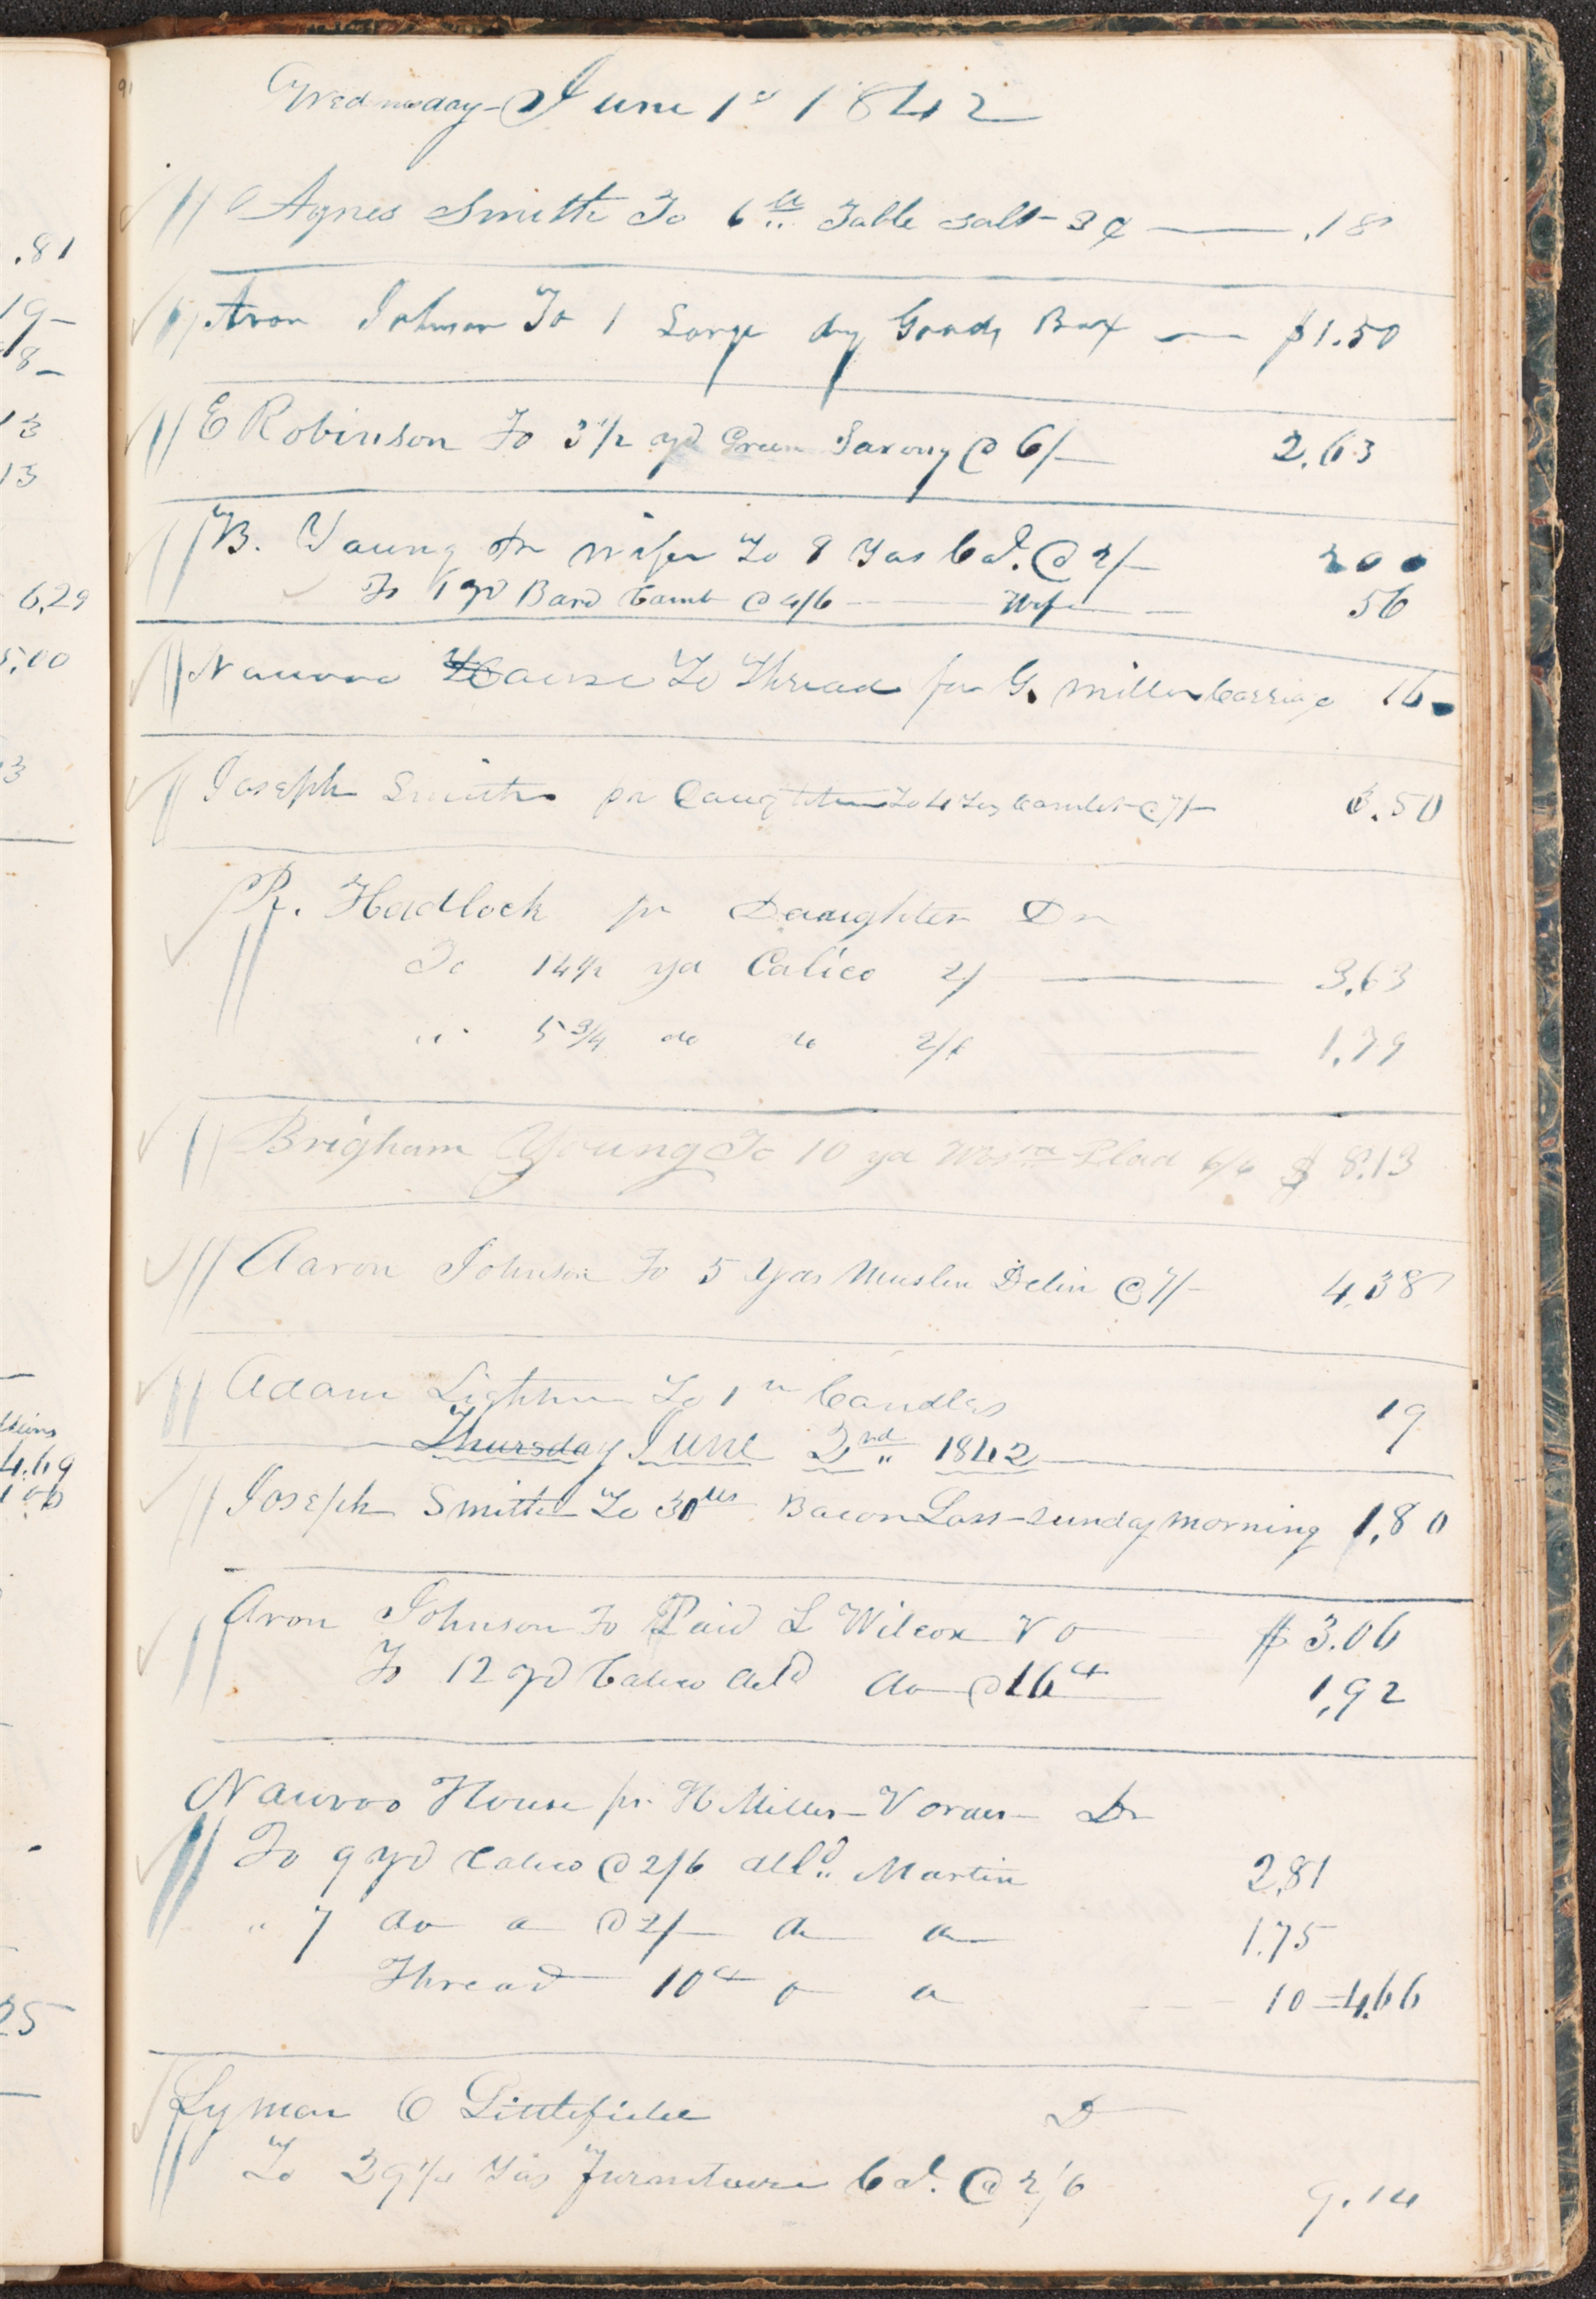 .81
19-
8-
13
13
6,29
5,00
3
4.69
25
91
Wednesday June 1st 1842
Agnes Smith To 6 lb Table salt 3¢ .18
Aron Johnson To 1 Large dry Goods Box $1.50
E Robinson To 3 1/2 yd Green Saxony @ 6/- 2.63
B. Young pr wife To 8 Yds Cal. @ 2/- 200
To 1 yd Bard Camb @ 4/6 Wife 56
Nauvoo House To Thread for G. Miller Carriage 16
Joseph Smith pr Daughter To 4 Yds Camlet @ 7/- 3.50
R. Hadlock pr Daughter Dr
To 14 1/2 yd Calico 2/ 3,63
" 5 3/4 do do 2/6 1,79
Brigham Young To 10 yd Plad 6/6 $ 8.13
Aaron Johnson To 5 Yds Muslin Delin @ 7/- 4,38
Adam Lightner To 1 lb Candles 19
Thursday June 2nd 1842
Joseph Smith To 30 lbs Bacon Lass-sunday morning 1,80
Aron Johnson To Paid L Wilcox V O $ 3.06
To 12 yd Calico deld do @ 16 cts 1,92
Nauvoo House pr H Miller Vorder Dr
To 9 yd Calico @ 2/6 deld Martin 2,81
" 7 do do @ 2/- do do 1.75
Thread 10 cts do do 10 = 4,66
Lyman O Littlefield Dr
To 29 1/4 Yds Furniture Cal. @ 2/6 9.14